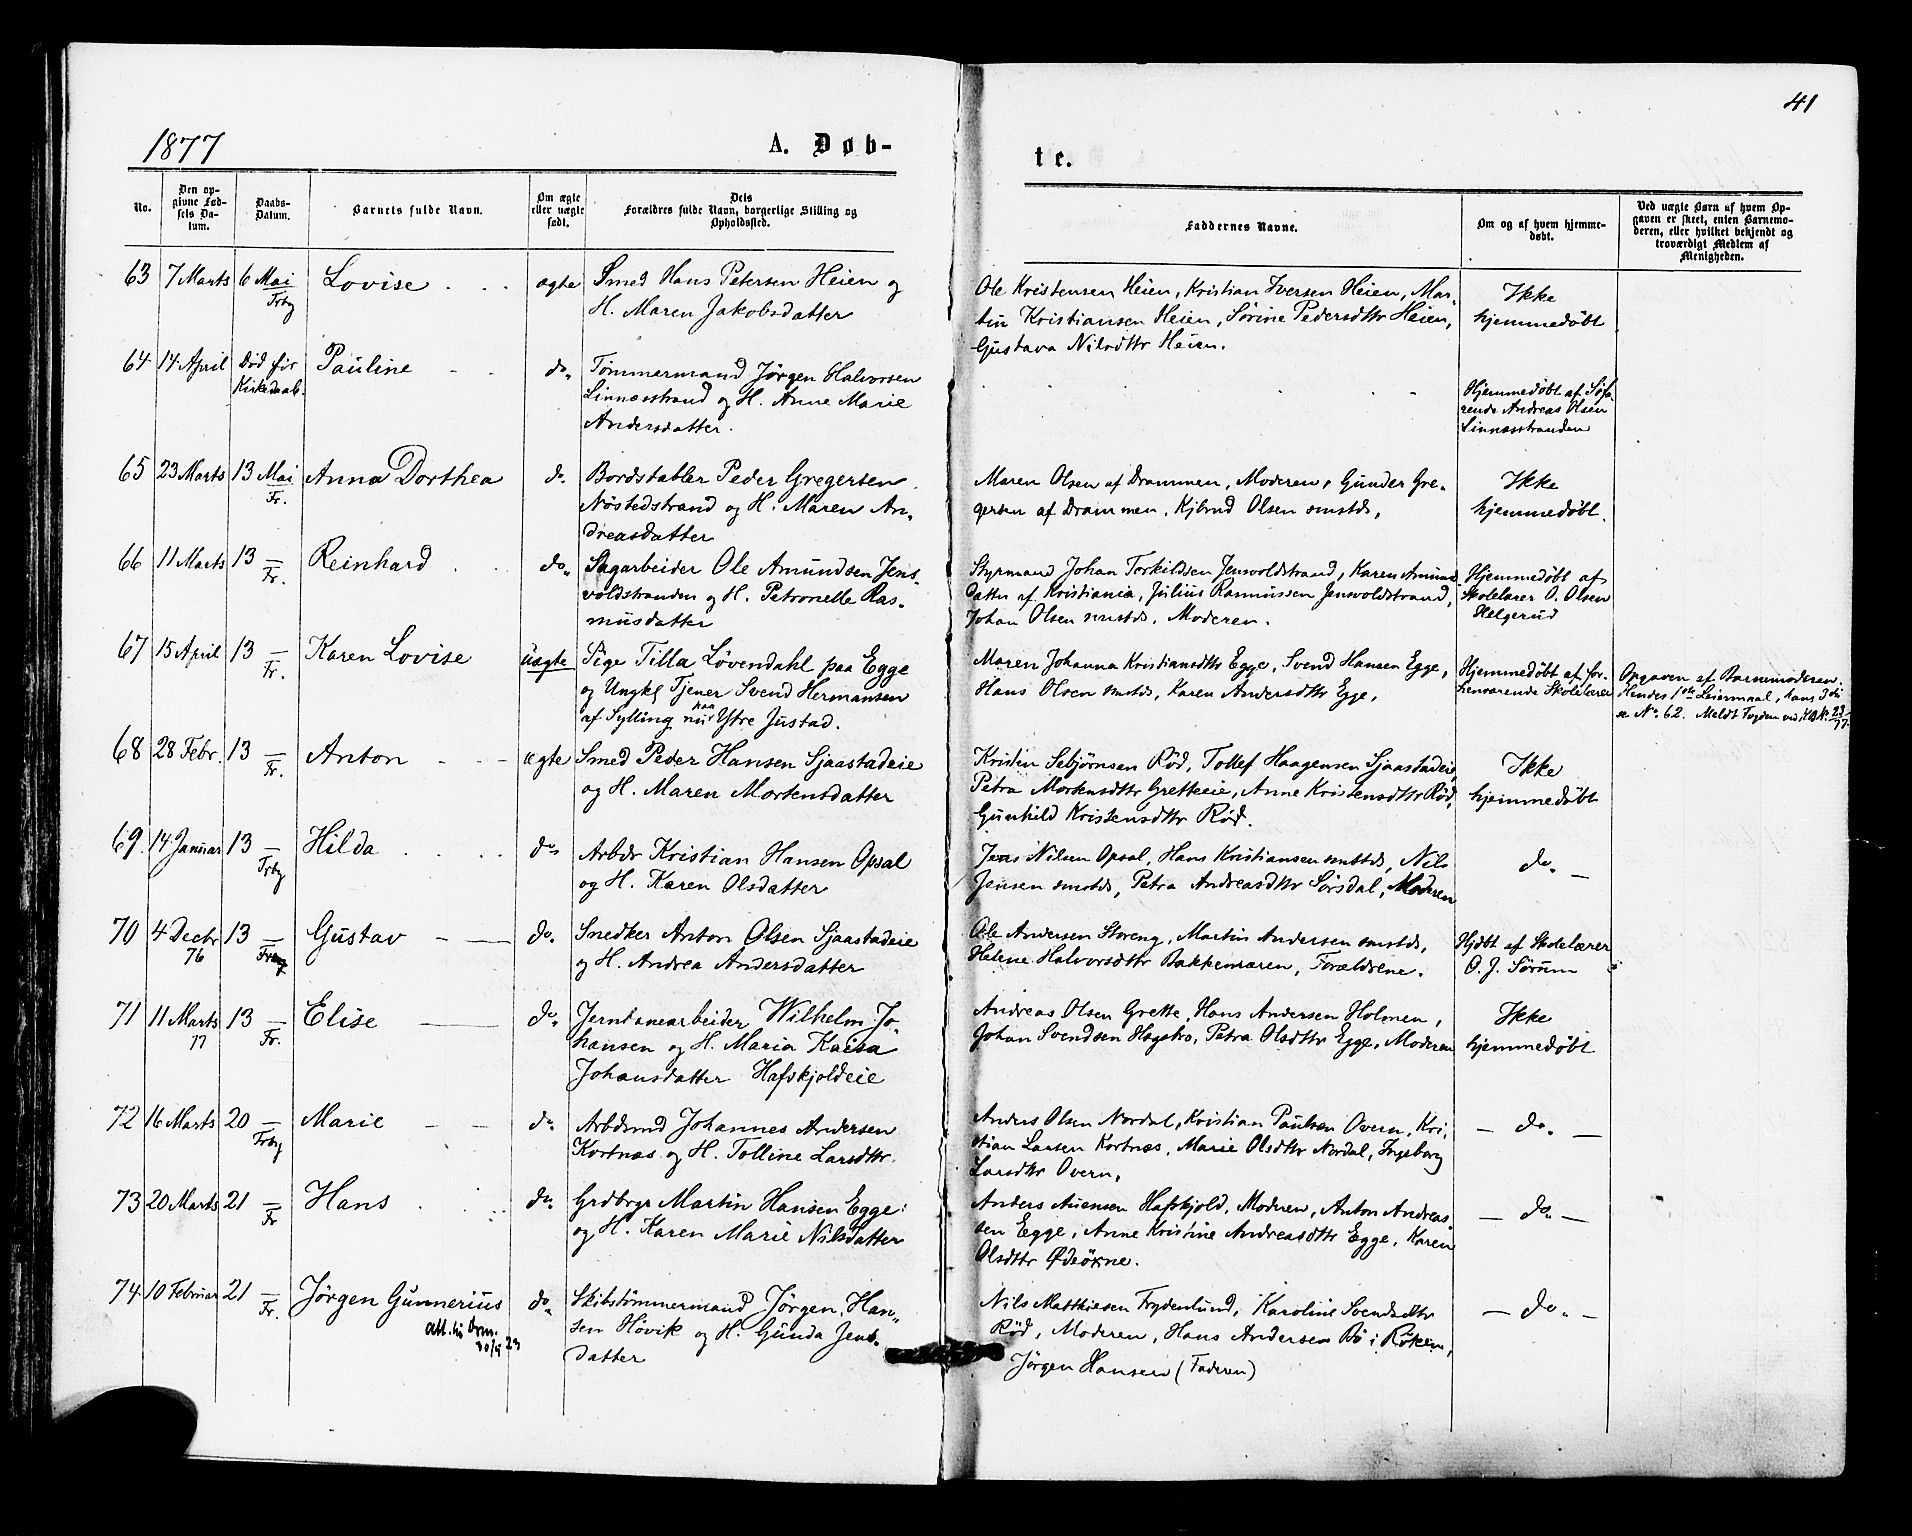 41
1877
A. Døb-
te.
No.
Den op-
givne Fød-
sels Da-
tum.
Daabs-
Datum.
Barnets fulde Navn.
Om ægte
eller uægte
født.
Dets
Forældres fulde Navn, borgerlige Stilling og
Opholdssted.
Faddernes Navne.
Om og af hvem hjemme-
døbt.
Ved uægte Børn af hvem Op-
gaven er skeet, enten Barnemo-
deren, eller hvilket bekjendt og
troværdigt Medlem af
Menigheden.
63 7 Marts 6 Mai Lovise ægte Smed Hans Petersen Heien og
Frby
H. Maren Jakobsdatter
Ole Kristensen Heien, Kristian Iversen Heien, Mar-
tin Kristiansen Heien, Sørine Pedersdttr Heien,
Gustava Nilsdttr Heien.
Ikke
hjemmedøbt
64 14 April Død før Pauline do. Tømmermand Jørgen Halvorsen
Kirkedaab.
Linnæsstrand og H. Anne Marie
Andersdatter.
Hjemmedøbt af Søfa-
rende Andreas Olsen
Linnæsstranden
65 23 Marts 13 Mai Anna Dorthea do. Bordstabler Peder Gregersen
Fr.
Nøstedstrand og H. Maren An-
dreasdatter
Maren Olsen af Drammen, Moderen, Gunder Gre-
gersen af Drammen, Olsen smstds,
Ikke
hjemmedøbt.
66 11 Marts 13 — Reinhard do. Sagarbeider Ole Amundsen Jens-
Fr.
voldstranden og H. Petronelle Ras-
musdatter
Styrmand Johan Torkildsen Jensvoldstrand, Karen Amunds
datter af Kristiania, Julius Rasmussen Jensvoldstrand,
Johan Olsen smstds, Moderen.
Hjemmedøbt af
Skolelærer O. Olsen
Helgerud
67 15 April 13 — Karen Lovise uægte Pige Tilla Løvendahl paa Egge
Fr.
og Ungkl Tjener Svend Hermansen
af Sylling nu paa Ytre Justad.
Maren Johanna Kristiansdttr Egge, Svend Hansen Egge,
Hans Olsen smstds, Karen Andersdttr Egge,
Hjemmedøbt af for-
henværende Skolelærer
Opgaven af Barnemoderen.
Hendes 1ste Leiermaal, hans 3die
se No. 62. Meldt Fogden ved KB No. 23/77.
68 28 Febr. 13 — Anton ægte Smed Peder Hansen Sjaastadeie
Fr.
og H. Maren Mortensdatter
Kristen Sebjørnsen Rød, Tollef Haagensen Sjaastadeie,
Petra Mortensdttr Gretteeie, Anne Kristensdttr Rød,
Gunhild Kristensdttr Rød.
Ikke
hjemmedøbt
69. 14 Januar 13 — Hilda do. Arbdr Kristian Hansen Opsal
Frby
og H. Karen Olsdatter
Jens Nilsen Opsal, Hans Kristiansen smstds, Nils
Jensen smstds, Petra Andreasdttr Sørsdal, Moderen
do. —
70 4 Decbr 13 — Gustav do. Snedker Anton Olsen Sjaastadeie
76 Frby
og H. Andrea Andersdatter
Ole Andersen Storeng, Martin Andersen smstds,
Helene Halvorsdttr Bakkenraren, Forældrene.
Hjdbt af Skolelærer
O. J. Sørum
71 11 Marts 13 — Elise do. Jernbanearbeider Wilhelm Jo-
77 Fr.
hansen og H. Maria Kaisa
Johansdatter Hafskjoldeie
Andreas Olsen Grette, Hans Andersen Holmen,
Johan Svendsen Høgsbro, Petra Olsdttr Egge, Moderen
Ikke
hjemmedøbt
72 16 Marts 20 — Marie do. Arbdsmd Johannes Andersen
Frby
Kortnæs og H. Tolline Larsdttr.
Anders Olsen Nordal, Kristian Paulsen Overn, Kri-
stian Larsen Kortnæs, Marie Olsdttr Nordal, Ingeborg
Larsdttr Overn,
— do. —
73 20 Marts 21 — Hans do. Grdbrgr Martin Hansen Egge
Fr
og H. Karen Marie Nilsdatter
Anders Hafskjold, Moderen, Anton Andreas-
sen Egge, Anne Kristine Andreasdttr Egge, Karen
Olsdttr
— do. —
74. 10 Februar 21 — Jørgen Gunnerius do. Skibstømmermand Jørgen Han-
Fr.
att. til
sen Høvik og H. Gunda Jens-
datter
Nils Matthiesen Frydenlund, Karoline Svendsdttr
Rød, Moderen, Hans Andersen Bø i Røken,
Jørgen Hansen (Faderen)
— do. —